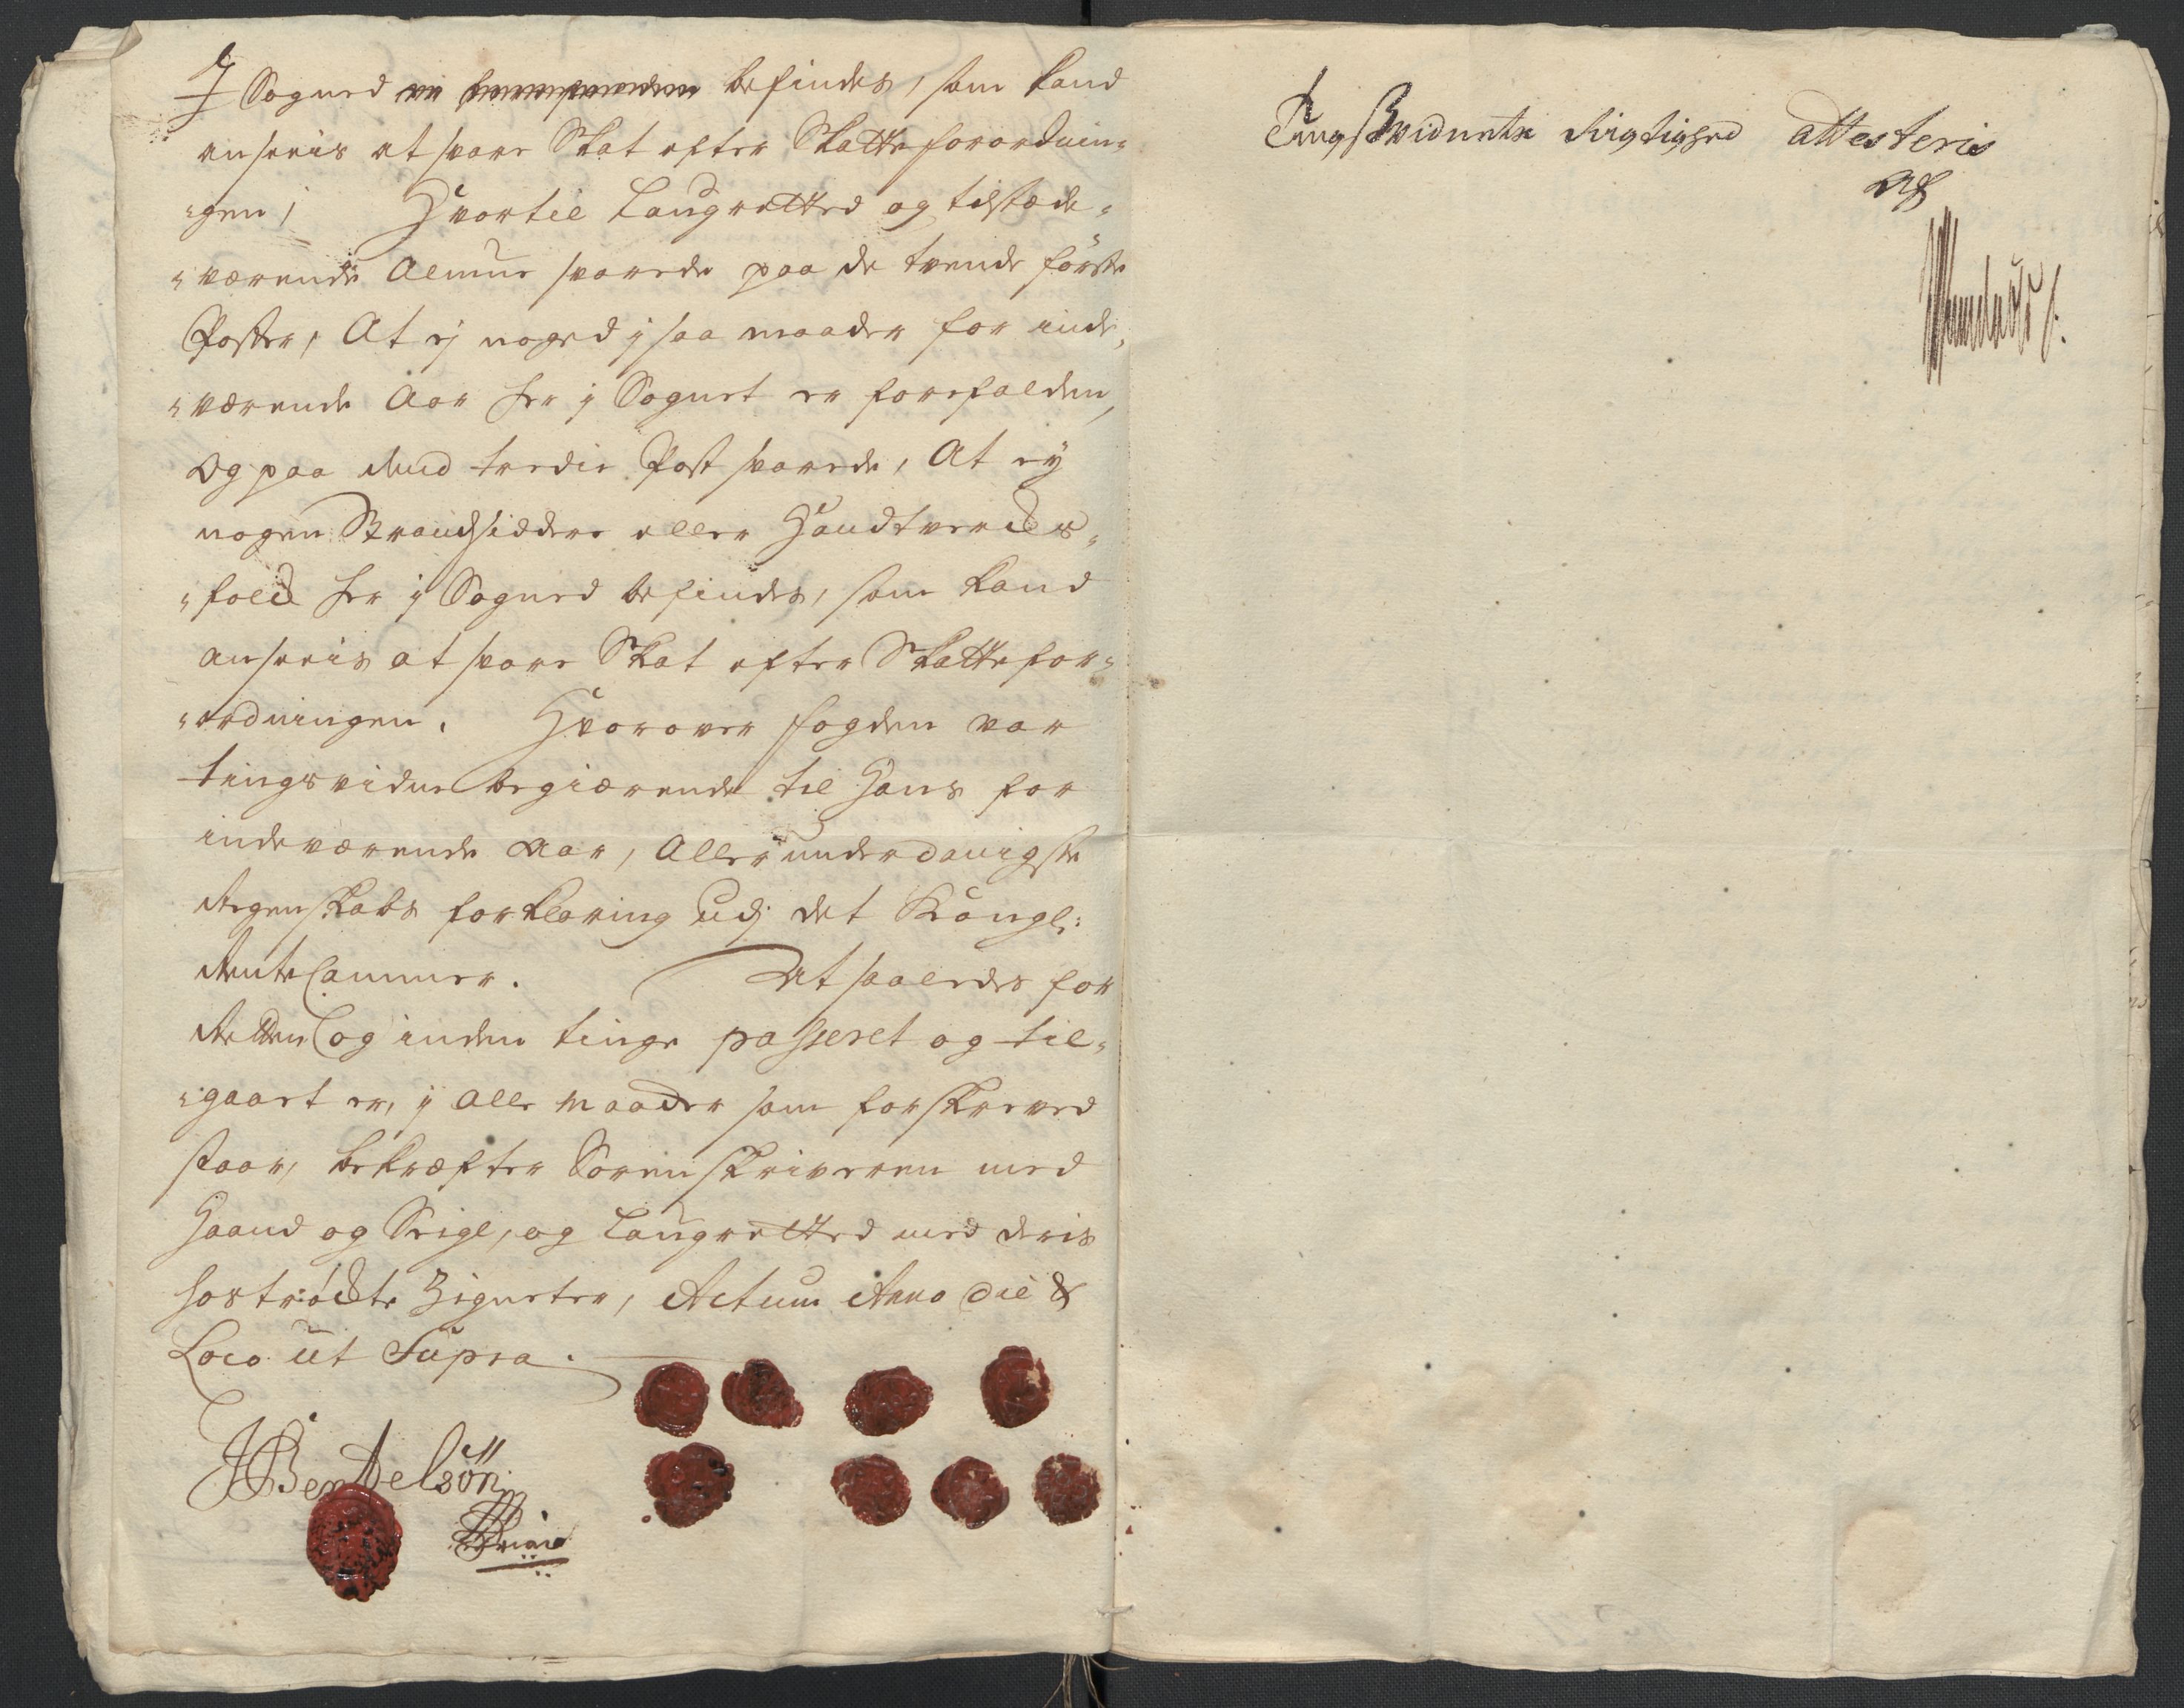 J Sogned befindes, som kand
anseeis at svare Skat efter Skatteforordnin-
-gen; Hvortil Laugretted og tilstæde-
-værende Almue svarede paa de tvende förste
Poster, At ej noged j saa maader for inde-
-værende Aar her j Sognet er forefalden,
Og paa dend tredie Post svarede, At ey
nogen Strandsiddere eller Handtvercks-
-folck her j Sogned befindes, som kand
anseeis at svare Skat efter Skattefor-
-ordningen. Hvorover fogden var
tingsvidne begiærende til Hans for
indeværende Aar, Allerunderdanigste
Regenskabs forklaring udj det Kongl:
Rente Cammer. At saaledes for
Retten og inden tinge passeret og til-
-gaaet er, j alle maader som forskreved
staar, bekræfter Sorenskriveren med
Haand og Seigl, og Laugretted med deris
hoströckte Zigneter, Actum Anno die &
Loco ut Supra.
JBentelsön
Tingsvidnets Rigtighed attesteris
Af